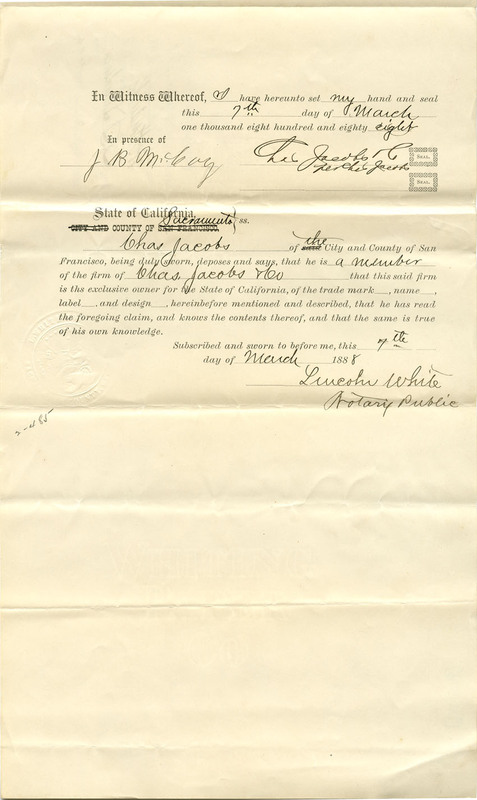 In Witness Whereof, I have hereunto set my hand and seal
this 7th day of March
one thousand eight hundred and eighty eight
In presence of
J B McCoy
Chas Jacobs & Co
per Chas Jacobs
SEAL.
SEAL.
State of California,
CITY AND COUNTY OF SAN FRANCISCO. Sacramento } ss.
Chas Jacobs of the City and County of San
Francisco, being duly sworn, deposes and says, that he is a member
of the firm of Chas. Jacobs & Co that this said firm
is ths exclusive owner for the State of California, of the trade mark , name ,
label , and design , hereinbefore mentioned and described, that he has read
the foregoing claim, and knows the contents thereof, and that the same is true
of his own knowledge.
Subscribed and sworn to before me, this 7th
day of March 1888
Lincoln White
Notary Public